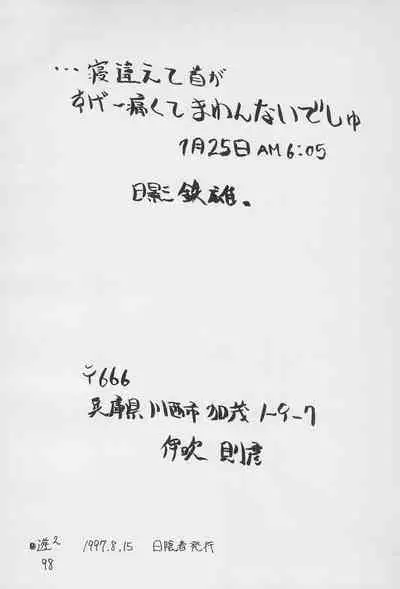 …寝違えて首が
すげー痛くてまわんないでしゅ
1月25日 AM6:05
日影 鉄雄。
〒666
兵庫県川西市加茂1-9-7
伊吹 則彦
遊2 1997.8.15 日陰者発行
98